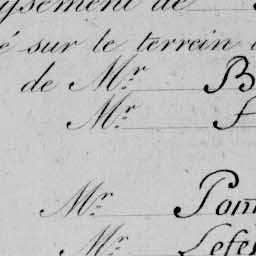 de
é sur le terrein
de Mr. B
Mr.
Mr. Pom
Mr. Lefe